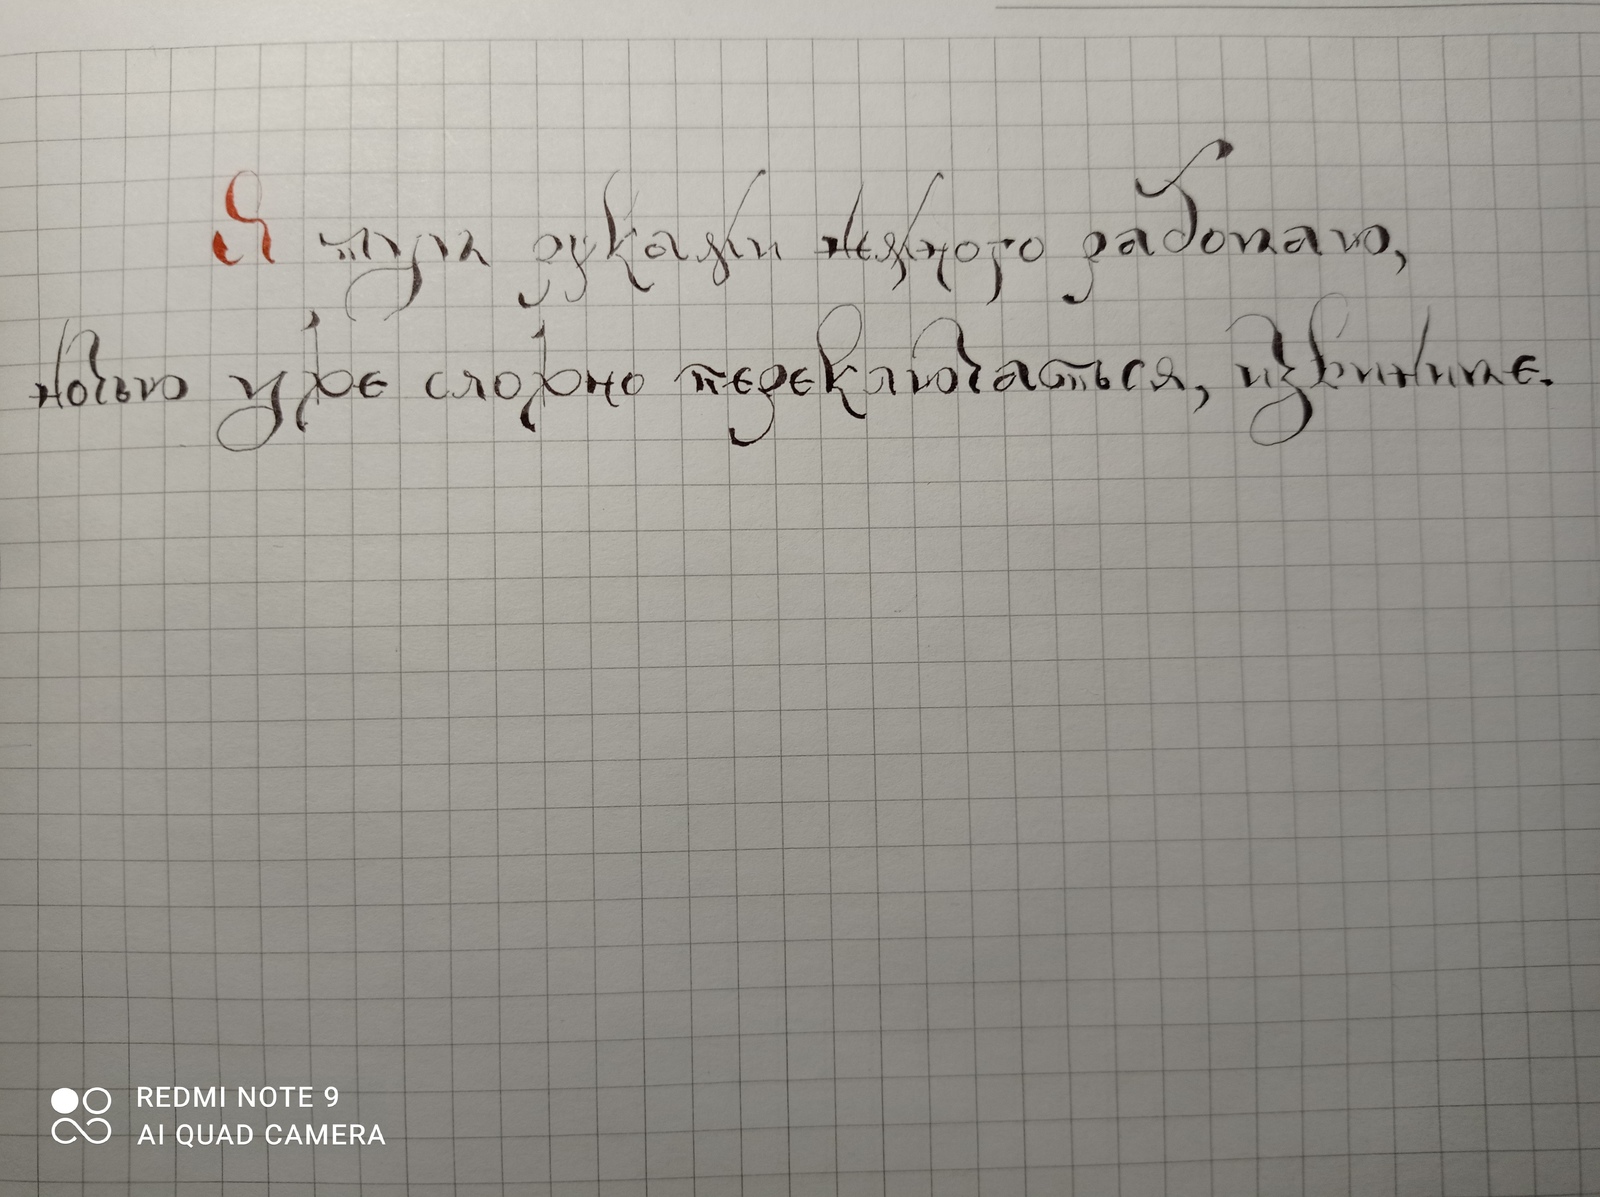 Я тут руками немного работаю,
ночью уже сложно переключаться, извините.
REDMI NOTE 9
AI QUAD CAMERA